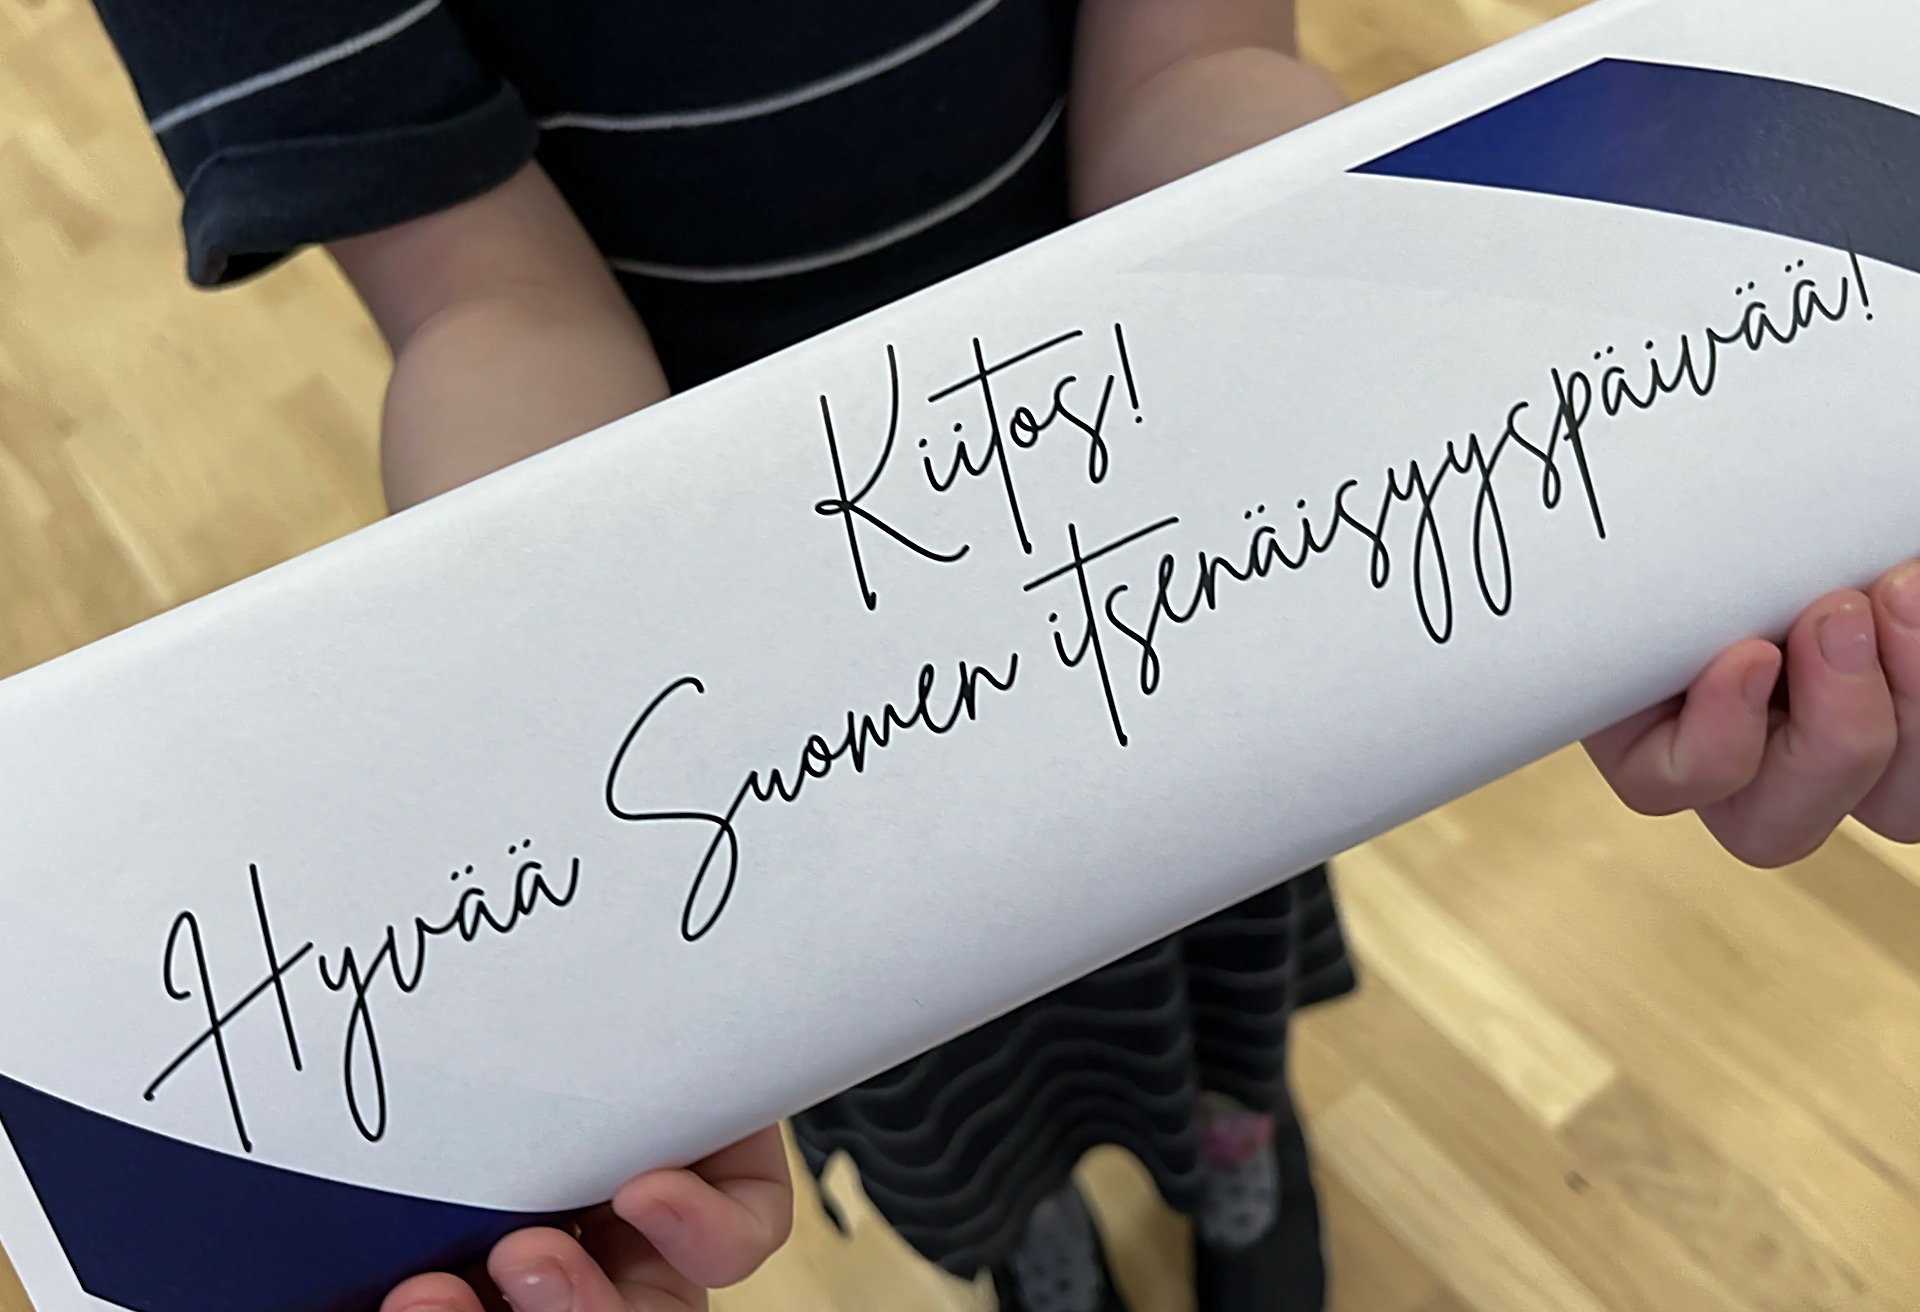 Kiitos!
Hyvää Suomen itsenäisyyspäivää!